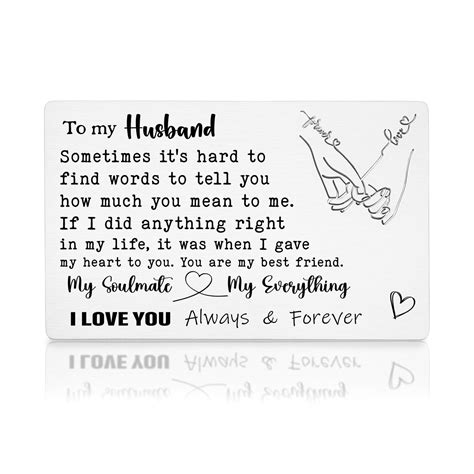 To my Husband
Sometimes it's hard to
find words to tell you
how much you mean to me.
If I did anything right
in my life, it was when I gave
my heart to you. You are my best friend.
My Soulmate My Everything
I LOVE YOU Always & Forever
forever
love